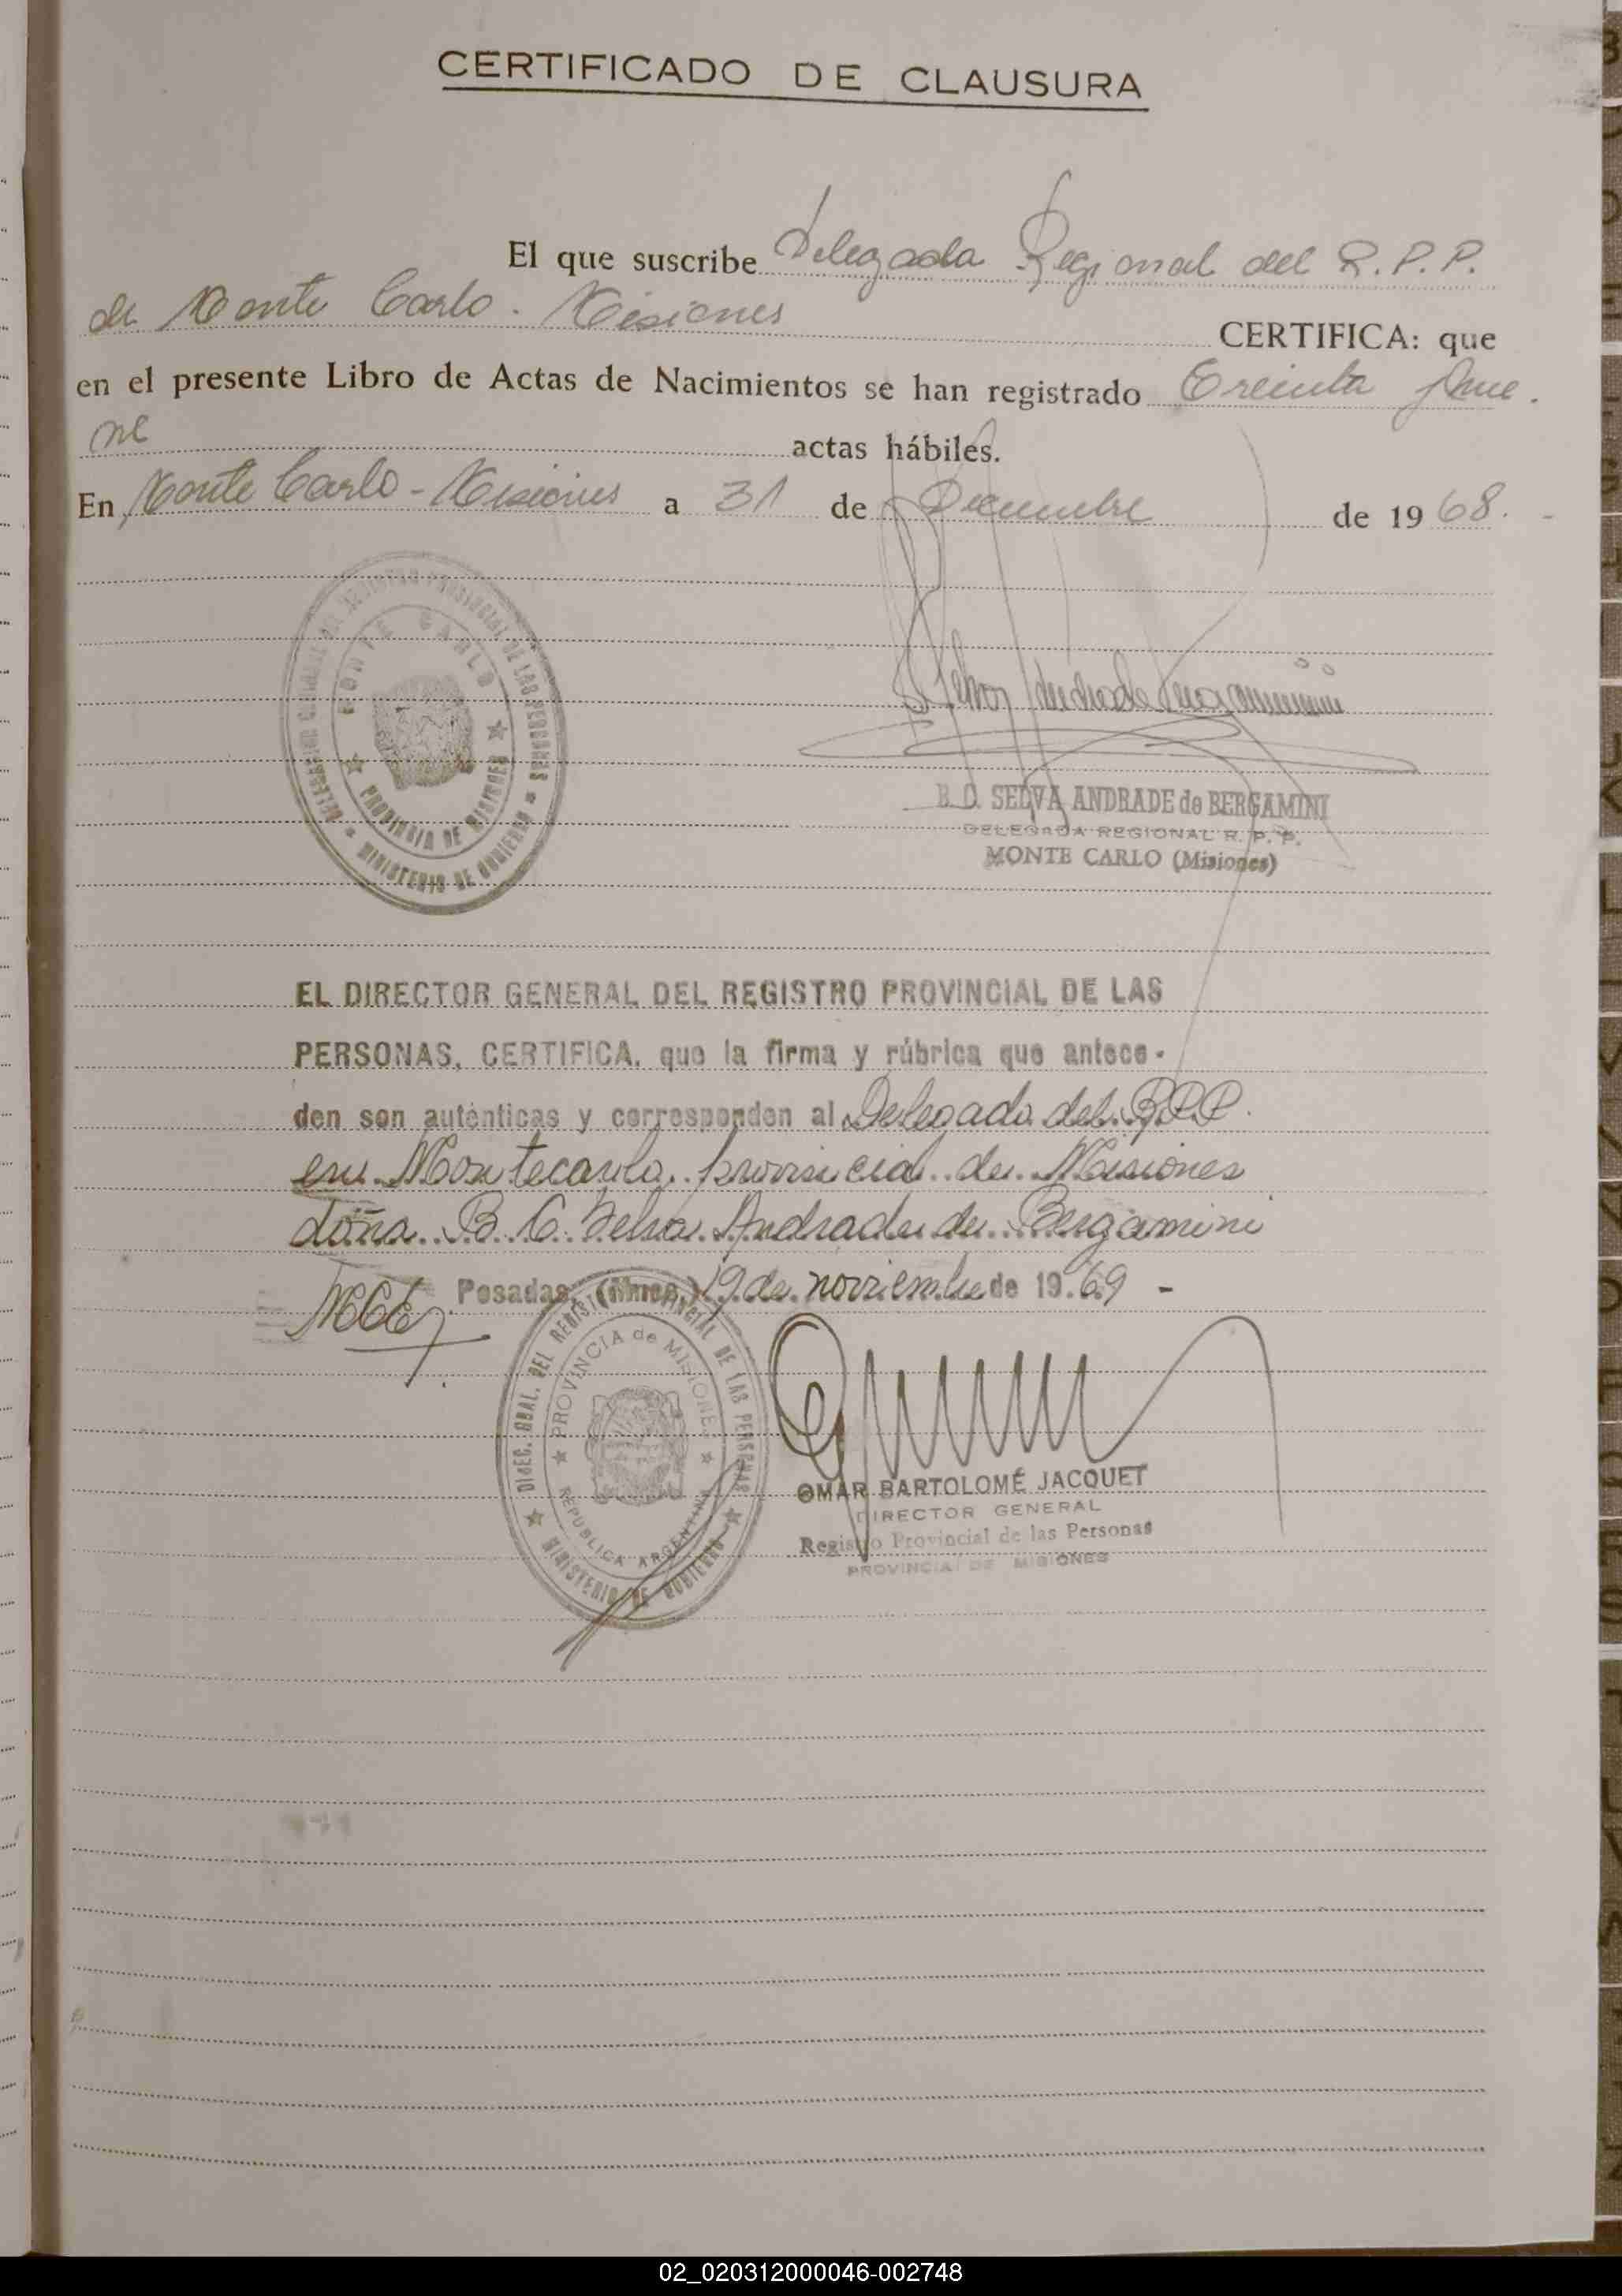 CERTIFICADO DE CLAUSURA
El que suscribe Delegada Regional del R.P.P.
de Monte Carlo - Misiones CERTIFICA: que
en el presente Libro de Actas de Nacimientos se han registrado Treinta y nue-
ve actas hábiles.
En Monte Carlo - Misiones a 31 de Diciembre de 1968.-
MONTE CARLO
PROVINCIA DE MISIONES
MINISTERIO DE GOBIERNO
B. C. SELVA ANDRADE de BERGAMINI
DELEGADA REGIONAL R. P. P.
MONTE CARLO (Misiones)
EL DIRECTOR GENERAL DEL REGISTRO PROVINCIAL DE LAS
PERSONAS, CERTIFICA, que la firma y rúbrica que antece-
den son auténticas y corresponden al Delegada del R.P.P.
en Montecarlo, provincia de Misiones
doña B. C. Selva Andrade de Bergamini
Posadas, (Mnes.) 19 de noviembre de 1969 -
DIREC. GRAL. DEL REGISTRO PROVINCIAL DE LAS PERSONAS
PROVINCIA de MISIONES
REPUBLICA ARGENTINA
MINISTERIO DE GOBIERNO
OMAR BARTOLOMÉ JACQUET
DIRECTOR GENERAL
Registro Provincial de las Personas
PROVINCIA DE MISIONES
02_020312000046-002748